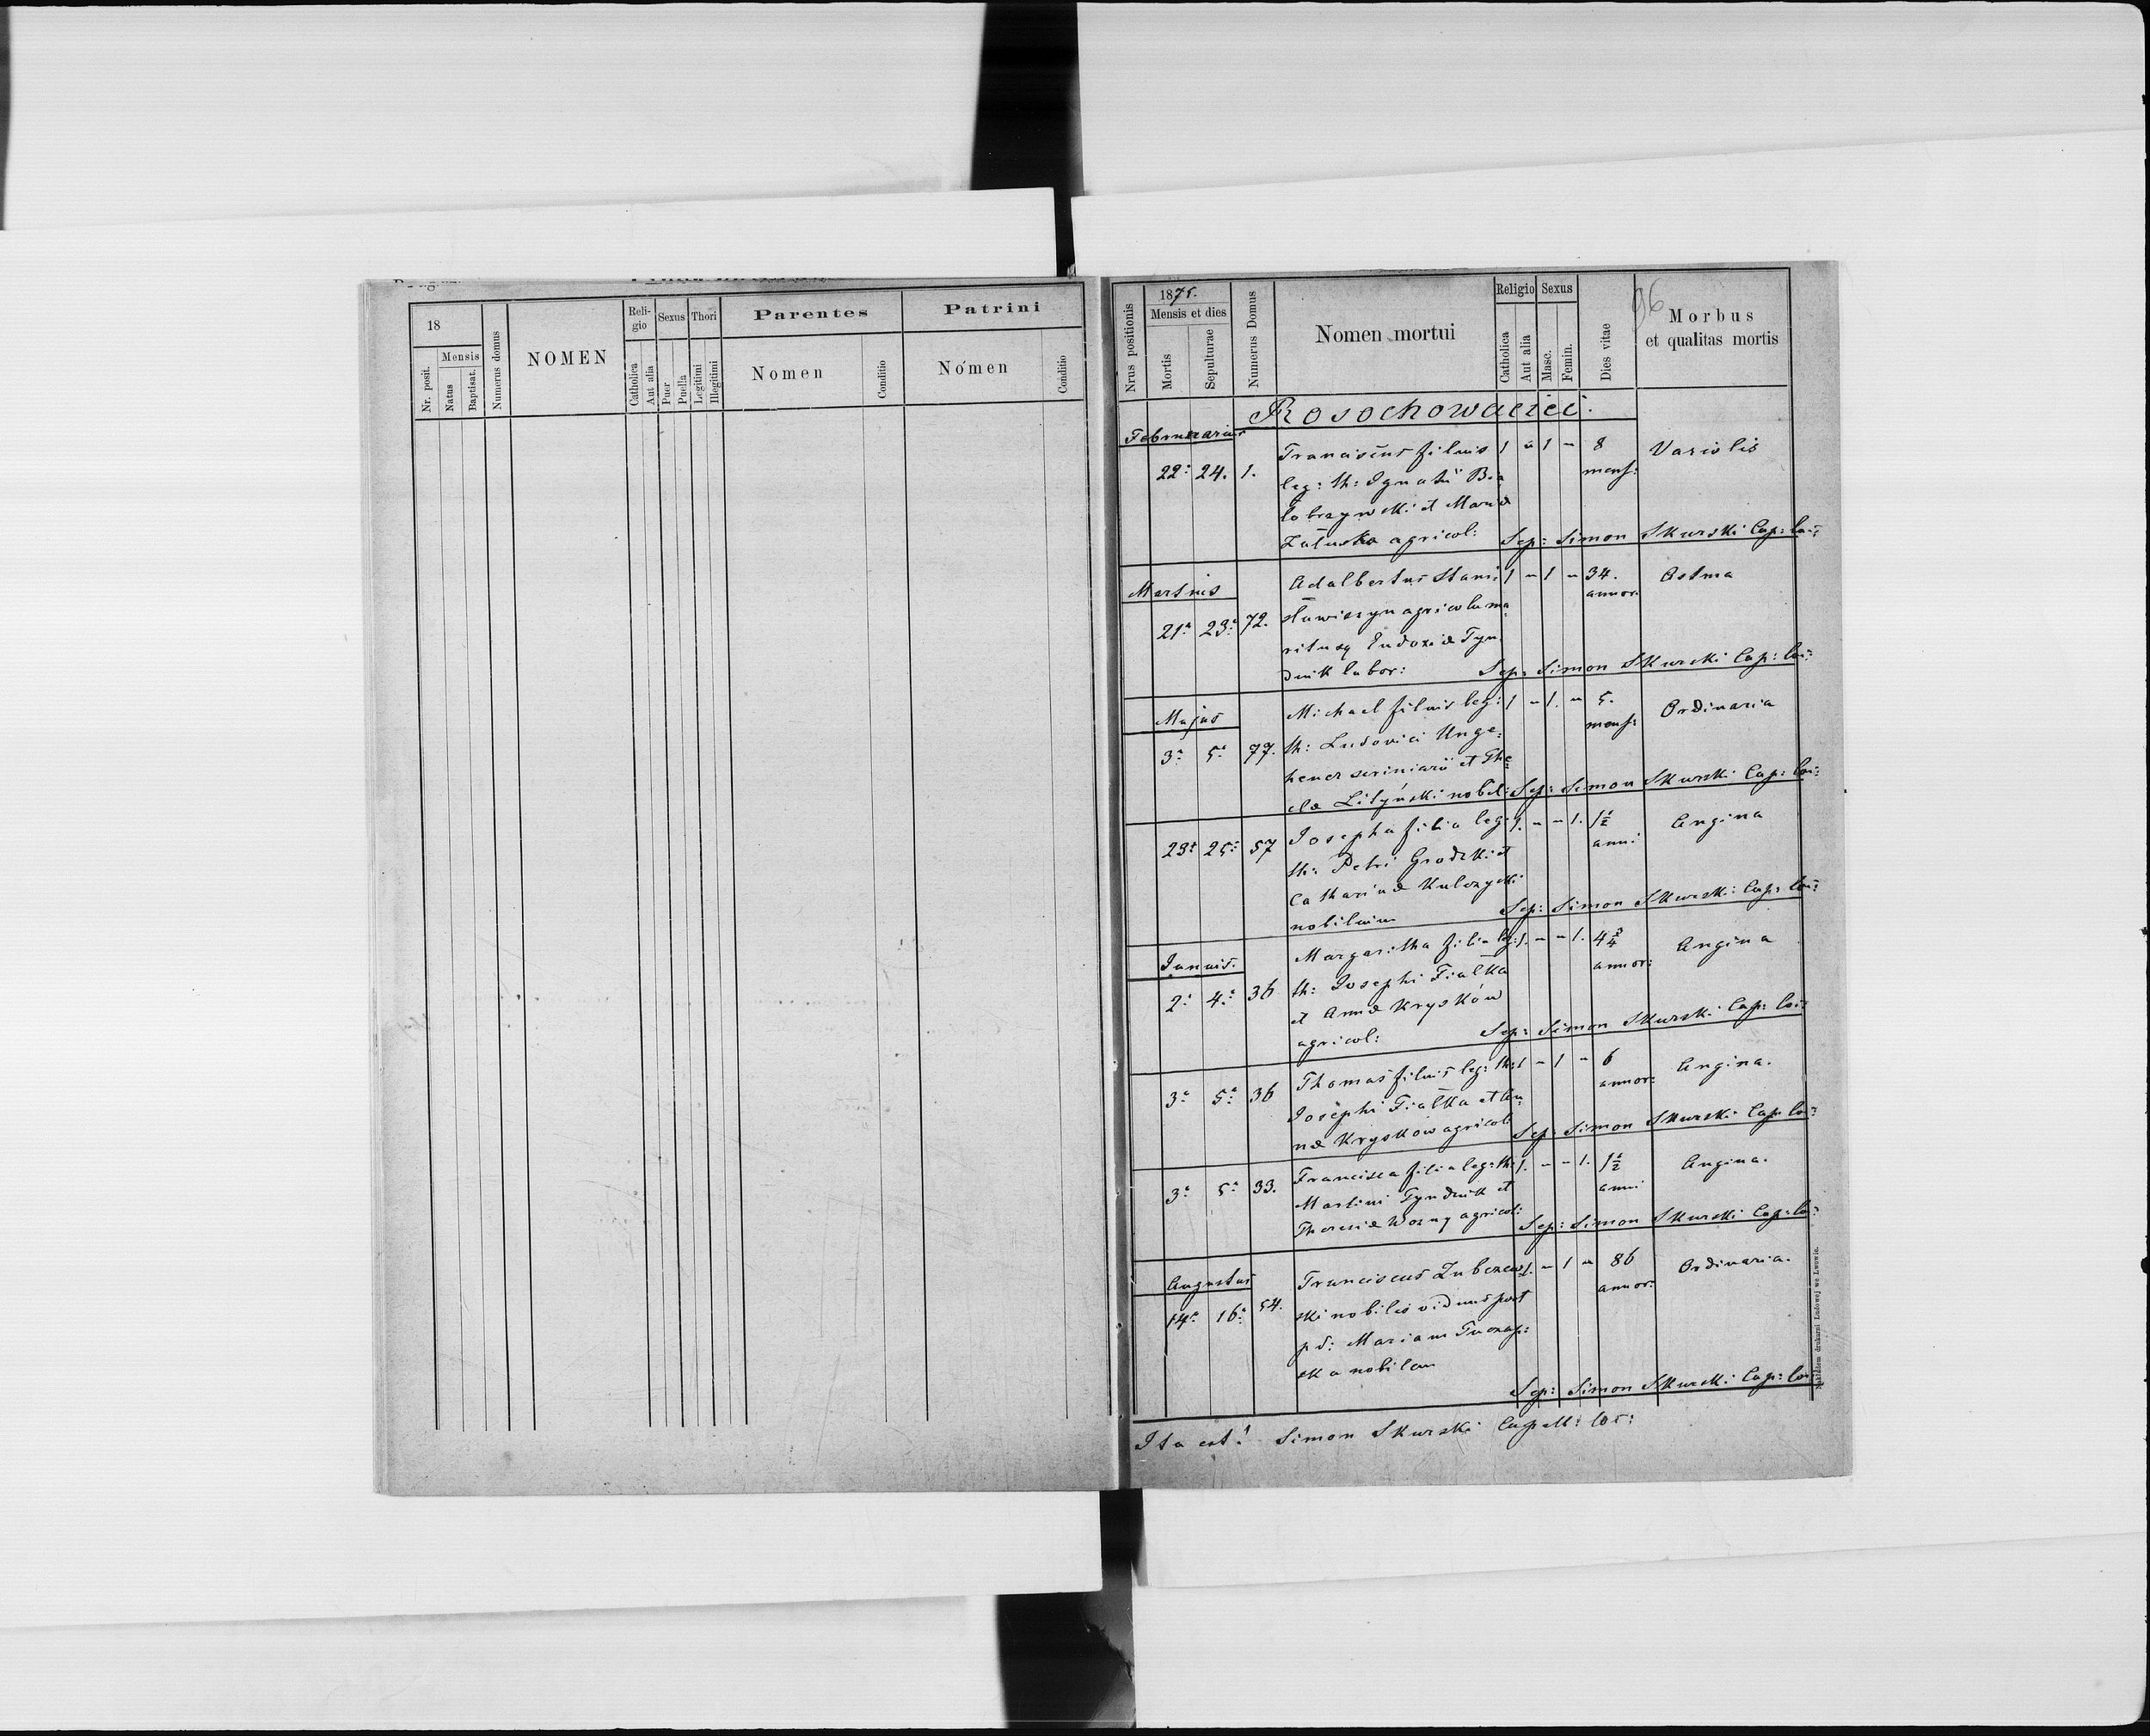 18
Nr. posit.
Mensis
Natus
Baptisat.
Numerus domus
NOMEN
Reli-
gio
Catholica
Aut alia
Sexus
Puer
Puella
Thori
Legitimi
Illegitimi
Parentes
Nomen
Conditio
Patrini
Nómen
Conditio
Nrus positionis
1875.
Mensis et dies
Mortis
Sepulturae
Numerus Domus
Nomen mortui
Religio
Catholica
Aut alia
Sexus
Masc.
Femin.
Dies vitae
96
Morbus
et qualitas mortis
Rosochowaciec.
Februarius
Franciscus filius 1 - 1 - 8 Variolis
22: 24. 1. leg: th: Ignatii Bia mens:
łobrzywski et Mariæ
Załuska agricol: Sep: Simon Skurski Cap: loc:
Martius
Adalbertus Stani 1 - 1 - 34. Astma
21a 23a 72. sławiszyn agricola ma annor:
ritusq Eudoxiæ Tyn
dnik labor: Sep: Simon Skurski Cap: loc:
Majus
Michael filius leg: 1 - 1. - 5. Ordinaria
3a 5a 77. th: Ludovici Unge: mens:
heuer scriniarii et The
clæ Lityński nobil: Sep: Simon Skurski Cap: loc:
Josepha filia leg: 1. - - 1. 1½ Angina
23a 25a 57 th: Petri Grodzki et anni
Catharinæ Kulczycki
nobilium Sep: Simon Skurski Cap: loc:
Junius.
Margaritha filia leg: 1. - - 1. 4¾ Angina
2a 4a 36 th: Josephi Fiałka annor:
et Annæ Krysków
agricol: Sep: Simon Skurski Cap: loc:
Thomas filius leg: th: 1 - 1 - 6 Angina.
3a 5a 36 Josephi Fiałka et An annor:
næ Krysków agricol: Sep: Simon Skurski Cap: loc:
Francisca filia leg: th: 1. - - 1. 1½ Angina.
3a 5a 33. Martini Tyndnik et anni
Theresiæ Wozny agricol: Sep: Simon Skurski Cap: loc:
Augustus
Franciscus Zubczew 1. - 1 - 86 Ordinaria.
14a 16a 54. ski nobilis viduus post annor:
pd: Mariam Tuczap:
ska nobilem
Sep: Simon Skurski Cap: loc:
Ita est! Simon Skurski Capell: loc:
Nakładem drukarni Ludowej we Lwowie.